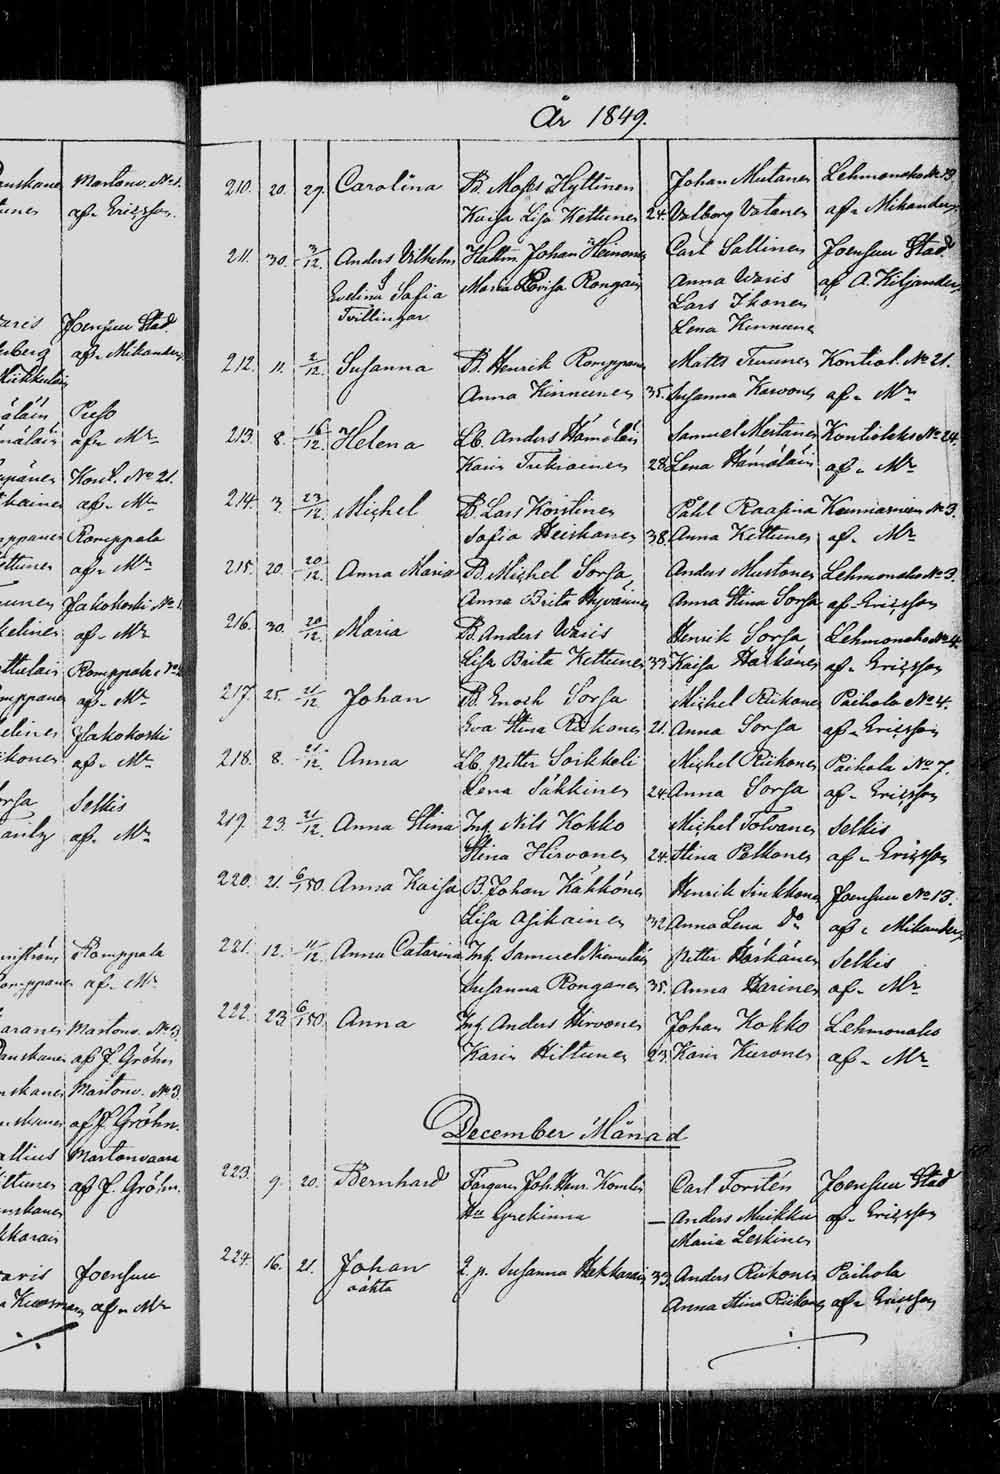 År 1849.
210. 20. 29. Carolina B. Moses Hyttinen Johan Mutanen Lehmonaho No 13
Kaisa Lisa Kettunen 24. Valborg Vatanen af - Mikander
211. 30. 3/12. Anders Vilhelm Johan Heinonen Carl Sallinen Joensuu Stad
Evelina Sofia Maria Lovisa Rongain Anna Waris af A. Kiljander
Tvillingar Lars Ikonen
Lena Kinnunen
212. 11. 2/12. Susanna B. Henrik Romppanen Matts Turunen Kontiol. No 21.
Anna Kinnunen 35. Susanna Karvonen af - Mr
213. 8. 16/12. Helena Lb. Anders Hämäläin Samuel Mertanen Kontioleks No 24.
Karin Tukiainen 28. Lena Hämäläin af - Mr
214. 3. 23/12. Michel B. Lars Kontinen Påhl Raasina No 3.
Sofia Heiskanen 38. Anna Kettunen af - Mr
215. 20. 20/12 Anna Maria B. Michel Sorsa Anders Mustonen Lehmonaho No 3.
Anna Brita Hyvärinen Anna Stina Sorsa af - Ericsson
216. 30. 20/12 Maria B. Anders Waris Henrik Sorsa Lehmonaho No 4.
Lisa Brita Kettunen 33. Kaisa af - Ericsson
217. 25. 21/12 Johan B. Enoch Sorsa Michel Riikonen Paihola No 4.
Eva Stina Riikonen 21. Anna Sorsa af - Ericsson
218. 8. 21/12. Anna Lb. Petter Soikkeli Michel Riikonen Paihola No 7.
Lena Säkkinen 24. Anna Sorsa af - Ericsson
219. 23. 21/12 Anna Stina Inh. Nils Kokko Michel Tolvanen Selkis
Stina Hirvonen 24. Stina Pelkonen af - Ericsson
220. 21. 6/1 50. Anna Kaisa B. Johan Käkkönen Henrik Sinkkonen Joensuu No 13.
Lisa Asikainen 32. Anna Lena Do af - Mikander
221. 12. 11/12 Anna Catarina Inh. Samuel Niemeläin Petter Selkis
Susanna Ronganen 35. Anna Harinen af - Mr
222. 23. 6/1 50. Anna Inh. Anders Hirvonen Johan Kokko Lehmonaho
Karin Hiltunen 23. Karin Kuronen af - Mr
December Månad
223. 9. 20. Bernhard Joh. Henr. Carl Forstén Joensuu Stad
Hu Grekinna — Anders Muikku af - Ericsson
Maria Leskinen
224. 16. 21. Johan Susanna 33. Anders Riikonen Paihola
oäkta Anna Stina Riikonen af - Ericsson
Martonv. No 1.
af - Ericsson.
Joensuu Stad.
af - Mikander
Puso
af - Mr
Kont. No 21.
af - Mr
Romppala
af - Mr
Jakokoski No 1.
af - Mr
Romppala No 2
af - Mr
Jakokoski
af - Mr
Selkis
af - Mr
Romppala
af - Mr
Martonv. No 3
af J. Gröhn
Martonv. No 3.
af J. Gröhn.
Martonvaara
af J. Gröhn.
Joensuu
af - Mr